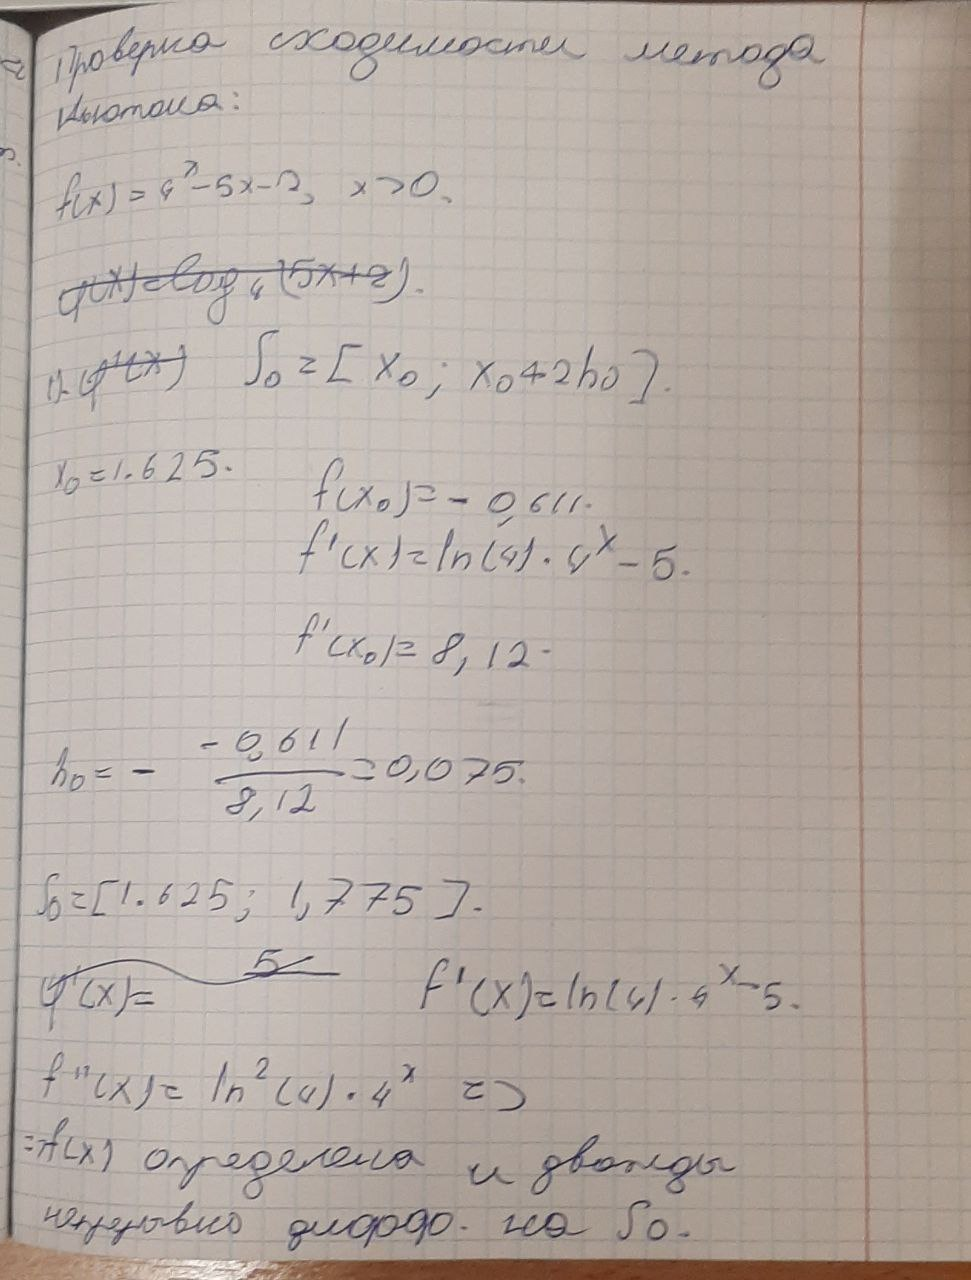 Проверка сходимости метода
Ньютона:
f(x) = 4^x - 5x - 2, x > 0.
φ(x) = log_4 (5x+2).
φ'(x) S_0 = [x_0; x_0 + 2h_0].
x_0 = 1.625. f(x_0) = - 0,611.
f'(x) = ln(4) · 4^x - 5.
f'(x_0) = 8,12.
h_0 = - \frac{-0,611}{8,12} = 0,075.
S_0 = [1.625; 1,775].
φ'(x) = 5 f'(x) = ln(4) · 4^x - 5.
f''(x) = ln^2(4) · 4^x =>
=> f(x) определена и дважды
непрерывно дифф. на S_0.